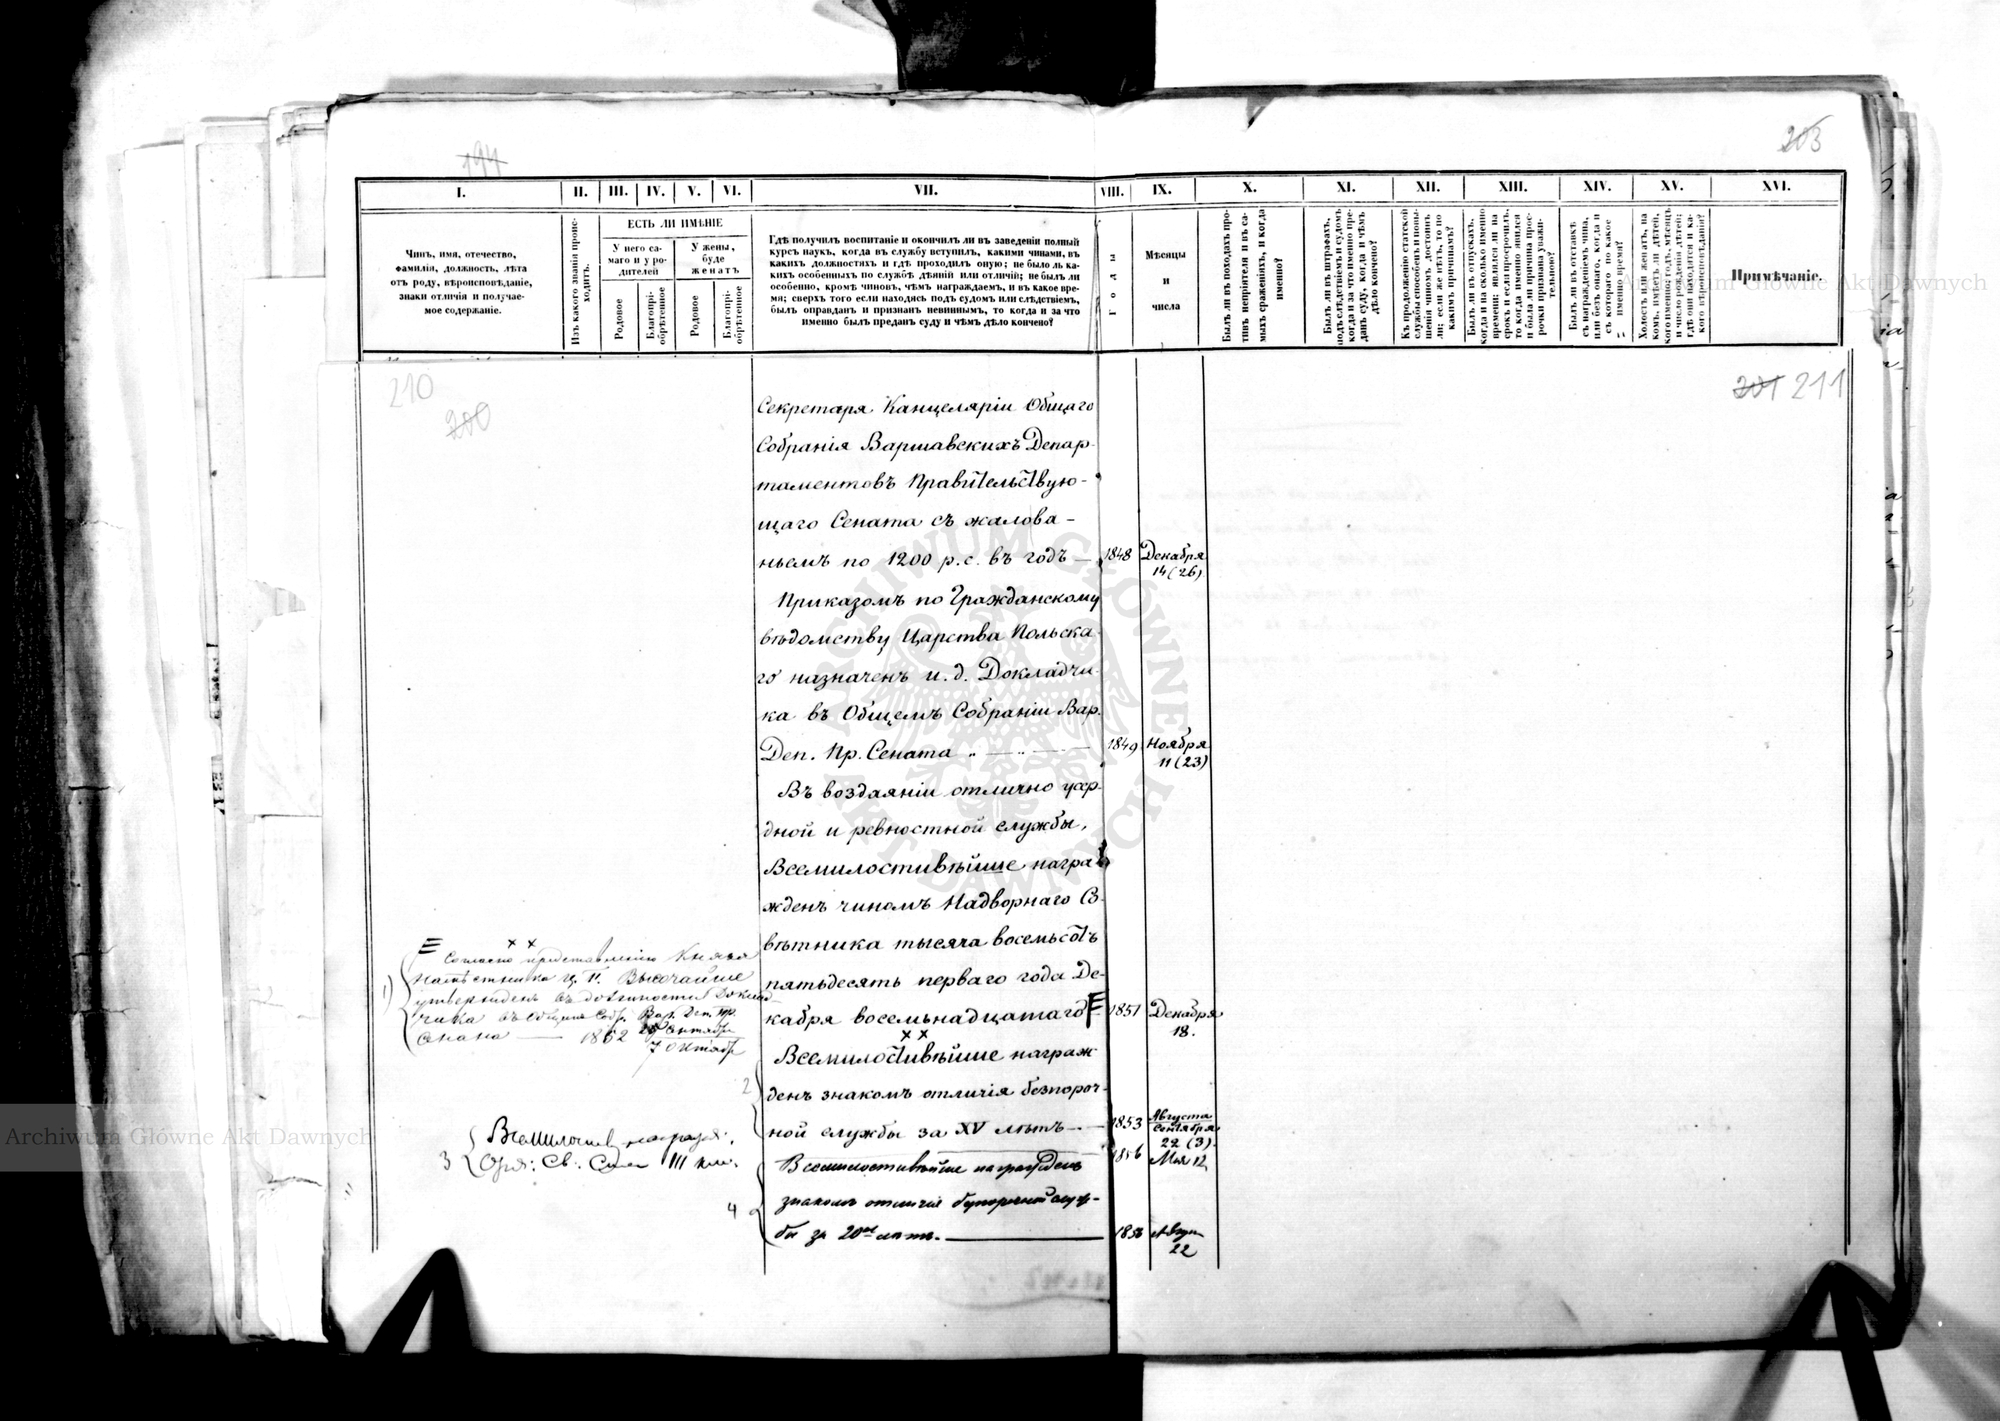 194
203
I.
II.
III.
IV.
V.
VI.
VII.
VIII.
IX.
X.
XI.
XII.
XIII.
XIV.
XV.
XVI.
Чинъ, имя, отечество,
фамилія, должность, лѣта
отъ роду, вѣроисповѣданіе,
знаки отличія и получае-
мое содержаніе.
Изъ какого званія проис-
ходитъ.
ЕСТЬ ЛИ ИМѢНІЕ
У него са-
маго и у ро-
дителей
У жены,
буде
женатъ
Родовое
Благопрі-
обрѣтенное
Родовое
Благопрі-
обрѣтенное
Гдѣ получилъ воспитаніе и окончилъ ли въ заведеніи полный
курсъ наукъ, когда въ службу вступилъ, какими чинами, въ
какихъ должностяхъ и гдѣ проходилъ оную; не было ль ка-
кихъ особенныхъ по службѣ дѣяній или отличій; не былъ ли
особенно, кромѣ чиновъ, чѣмъ награждаемъ, и въ какое вре-
мя; сверхъ того если находясь подъ судомъ или слѣдствіемъ,
былъ оправданъ и признанъ невиннымъ, то когда и за что
именно былъ преданъ суду и чѣмъ дѣло кончено?
Годы
Мѣсяцы
и
числа
Былъ ли въ походахъ про-
тивъ непріятеля и въ са-
мыхъ сраженіяхъ, и когда
именно?
Былъ ли въ штрафахъ,
подъ слѣдствіемъ и судомъ,
когда и за что именно пре-
данъ суду, когда и чѣмъ
дѣло кончено?
Къ продолженію статской
службы способенъ и повы-
шенія чиномъ достоинъ
ли; если же нѣтъ, то по
какимъ причинамъ?
Былъ ли въ отпускахъ,
когда и на сколько именно
времени; явился ли на
срокъ и если просрочилъ,
то когда именно явился
и была ли причина прос-
рочки признана уважи-
тельною?
Былъ ли въ отставкѣ
съ награжденіемъ чина,
или безъ онаго, когда и
съ котораго по какое
именно время?
Холостъ или женатъ, на
комъ, имѣетъ ли дѣтей,
кого именно; годъ, мѣсяцъ
и число рожденія дѣтей;
гдѣ они находятся и ка-
кого вѣроисповѣданія?
Примѣчаніе.
Archiwum Główne Akt Dawnych
210
200
201 211
Секретаря Канцеляріи Общаго
Собранія Варшавскихъ Депар-
таментовъ Правительствую-
щаго Сената съ жалова-
ньемъ по 1200 р.с. въ годъ — 1848 Декабря
14 (26)
Приказомъ по Гражданскому
вѣдомству Царства Польска-
го назначенъ и.д. Докладчи-
ка въ Общемъ Собраніи Вар.
Деп. Пр. Сената — 1849 Ноября
11 (23)
Въ воздаяніи отлично усер-
дной и ревностной службы,
Всемилостивѣйше награ-
жденъ чиномъ Надворнаго Со-
вѣтника тысяча восемьсотъ
пятьдесятъ перваго года Де-
кабря восемьнадцатаго 1851 Декабря
18.
Согласно представленію Князя
Намѣстника Ц. П. Высочайше
утвержденъ въ должности Доклад-
чика въ Общемъ Собр. Вар. Деп. Пр.
Сената — 1852 25 Сентября
7 Октябр
1)
2
Всемилостивѣйше награж-
денъ знакомъ отличія безпороч-
ной службы за XV лѣтъ — 1853 Августа
Сентября
22 (3)
3 Всемилостив. награжд:
Орд: Св: Стан III кл. 1856 Мая 12
4
Всемилостивѣйше награжденъ
знакомъ отличія безпорочной служ-
бы за 20ть лѣтъ. — Август
22
ARCHIWUM GŁÓWNE AKT DAWNYCH
Archiwum Główne Akt Dawnych